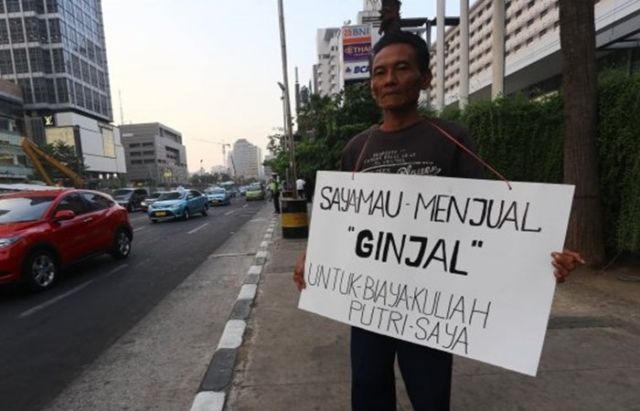 BNI
SAYA MAU-MENJUAL
"GINJAL"
UNTUK-BIAYA-KULIAH
PUTRI-SAYA